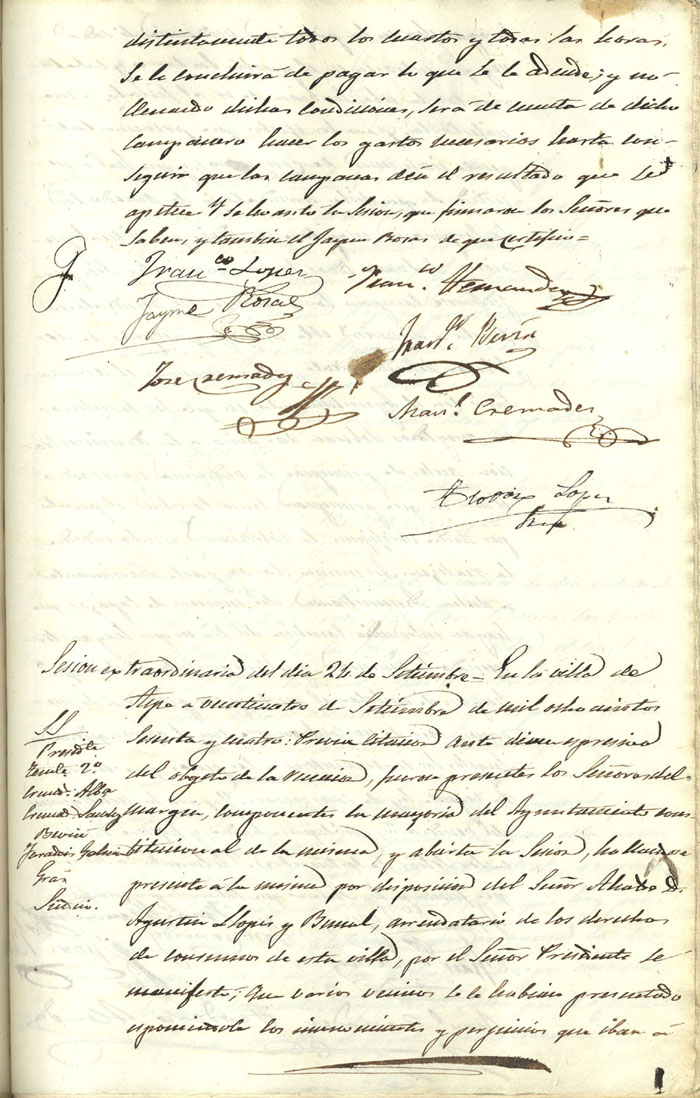 distintamente todos los cuartos y todas las horas,
se le concluirá de pagar lo que se le adeude; y no
llenando dichas condiciones, será de cuenta de dicho
campanero hacer los gastos necesarios hasta con-
seguir que las campanas dén el resultado que se
apetece. Y se levantó la sesion, que firmaron los Señores que
saben, y tambien el Jayme Rosas de que certifico=
Fran.co Lopez
Fran.co Hernandez
Jayme Rosas
Fran.co
Jose Cremades
Cremades
Lopez
Sesion extraordinaria del dia 24 de Setiembre = En la villa de
Aspe á veinticuatro de Setiembre de mil ochocientos
sesenta y cuatro: Previa citacion ante diem espresiva
del objeto de la reunion, fueron presentes los Señores del
margen, componentes la mayoria del Ayuntamiento cons
titucional de la misma, y abierta la Sesion, hallandose
presente á la misma por disposicion del Señor Alcalde D.
Agustin Llopis y Bernal, arrendatario de los derechos
de consumos de esta villa, por el Señor Presidente se
manifestó; Que varios vecinos se le habian presentado
esponiendole los inconvenientes y perjuicios que iban á
SS
Presid.te
Ten.te 2.o
Alba
Cremad. Sanchez
Galvan
Sindico.